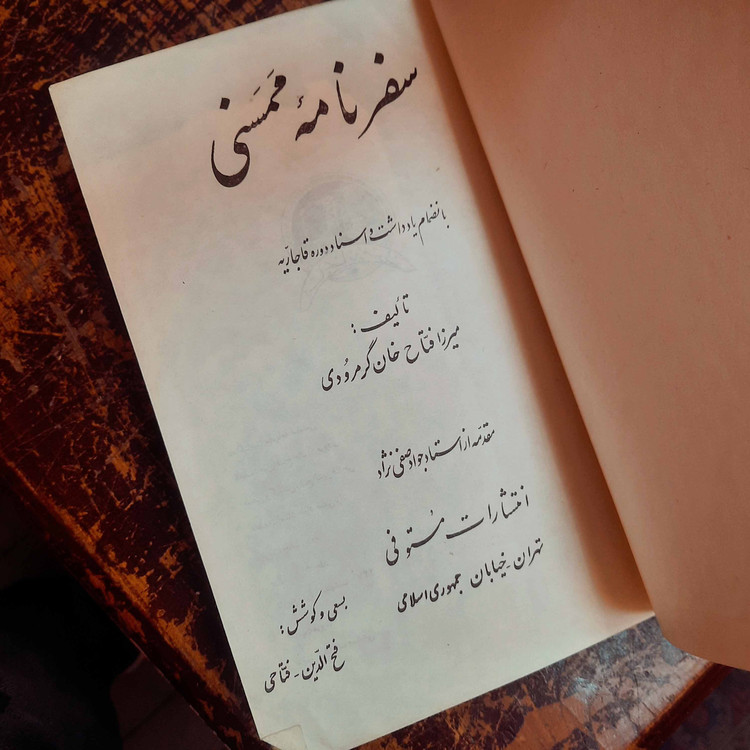 سفرنامهٔ مَمَسَنی
بانضمام یادداشت و اسناد دوره قاجاریّه
تألیف:
میرزا فتّاح خان گرمرودی
مقدّمه از استاد جواد صفی نژاد
انتشارات مُستوفی
تهران - خیابان جمهوری اسلامی
بسعی و کوشش:
فتح الدّین - فتّاحی